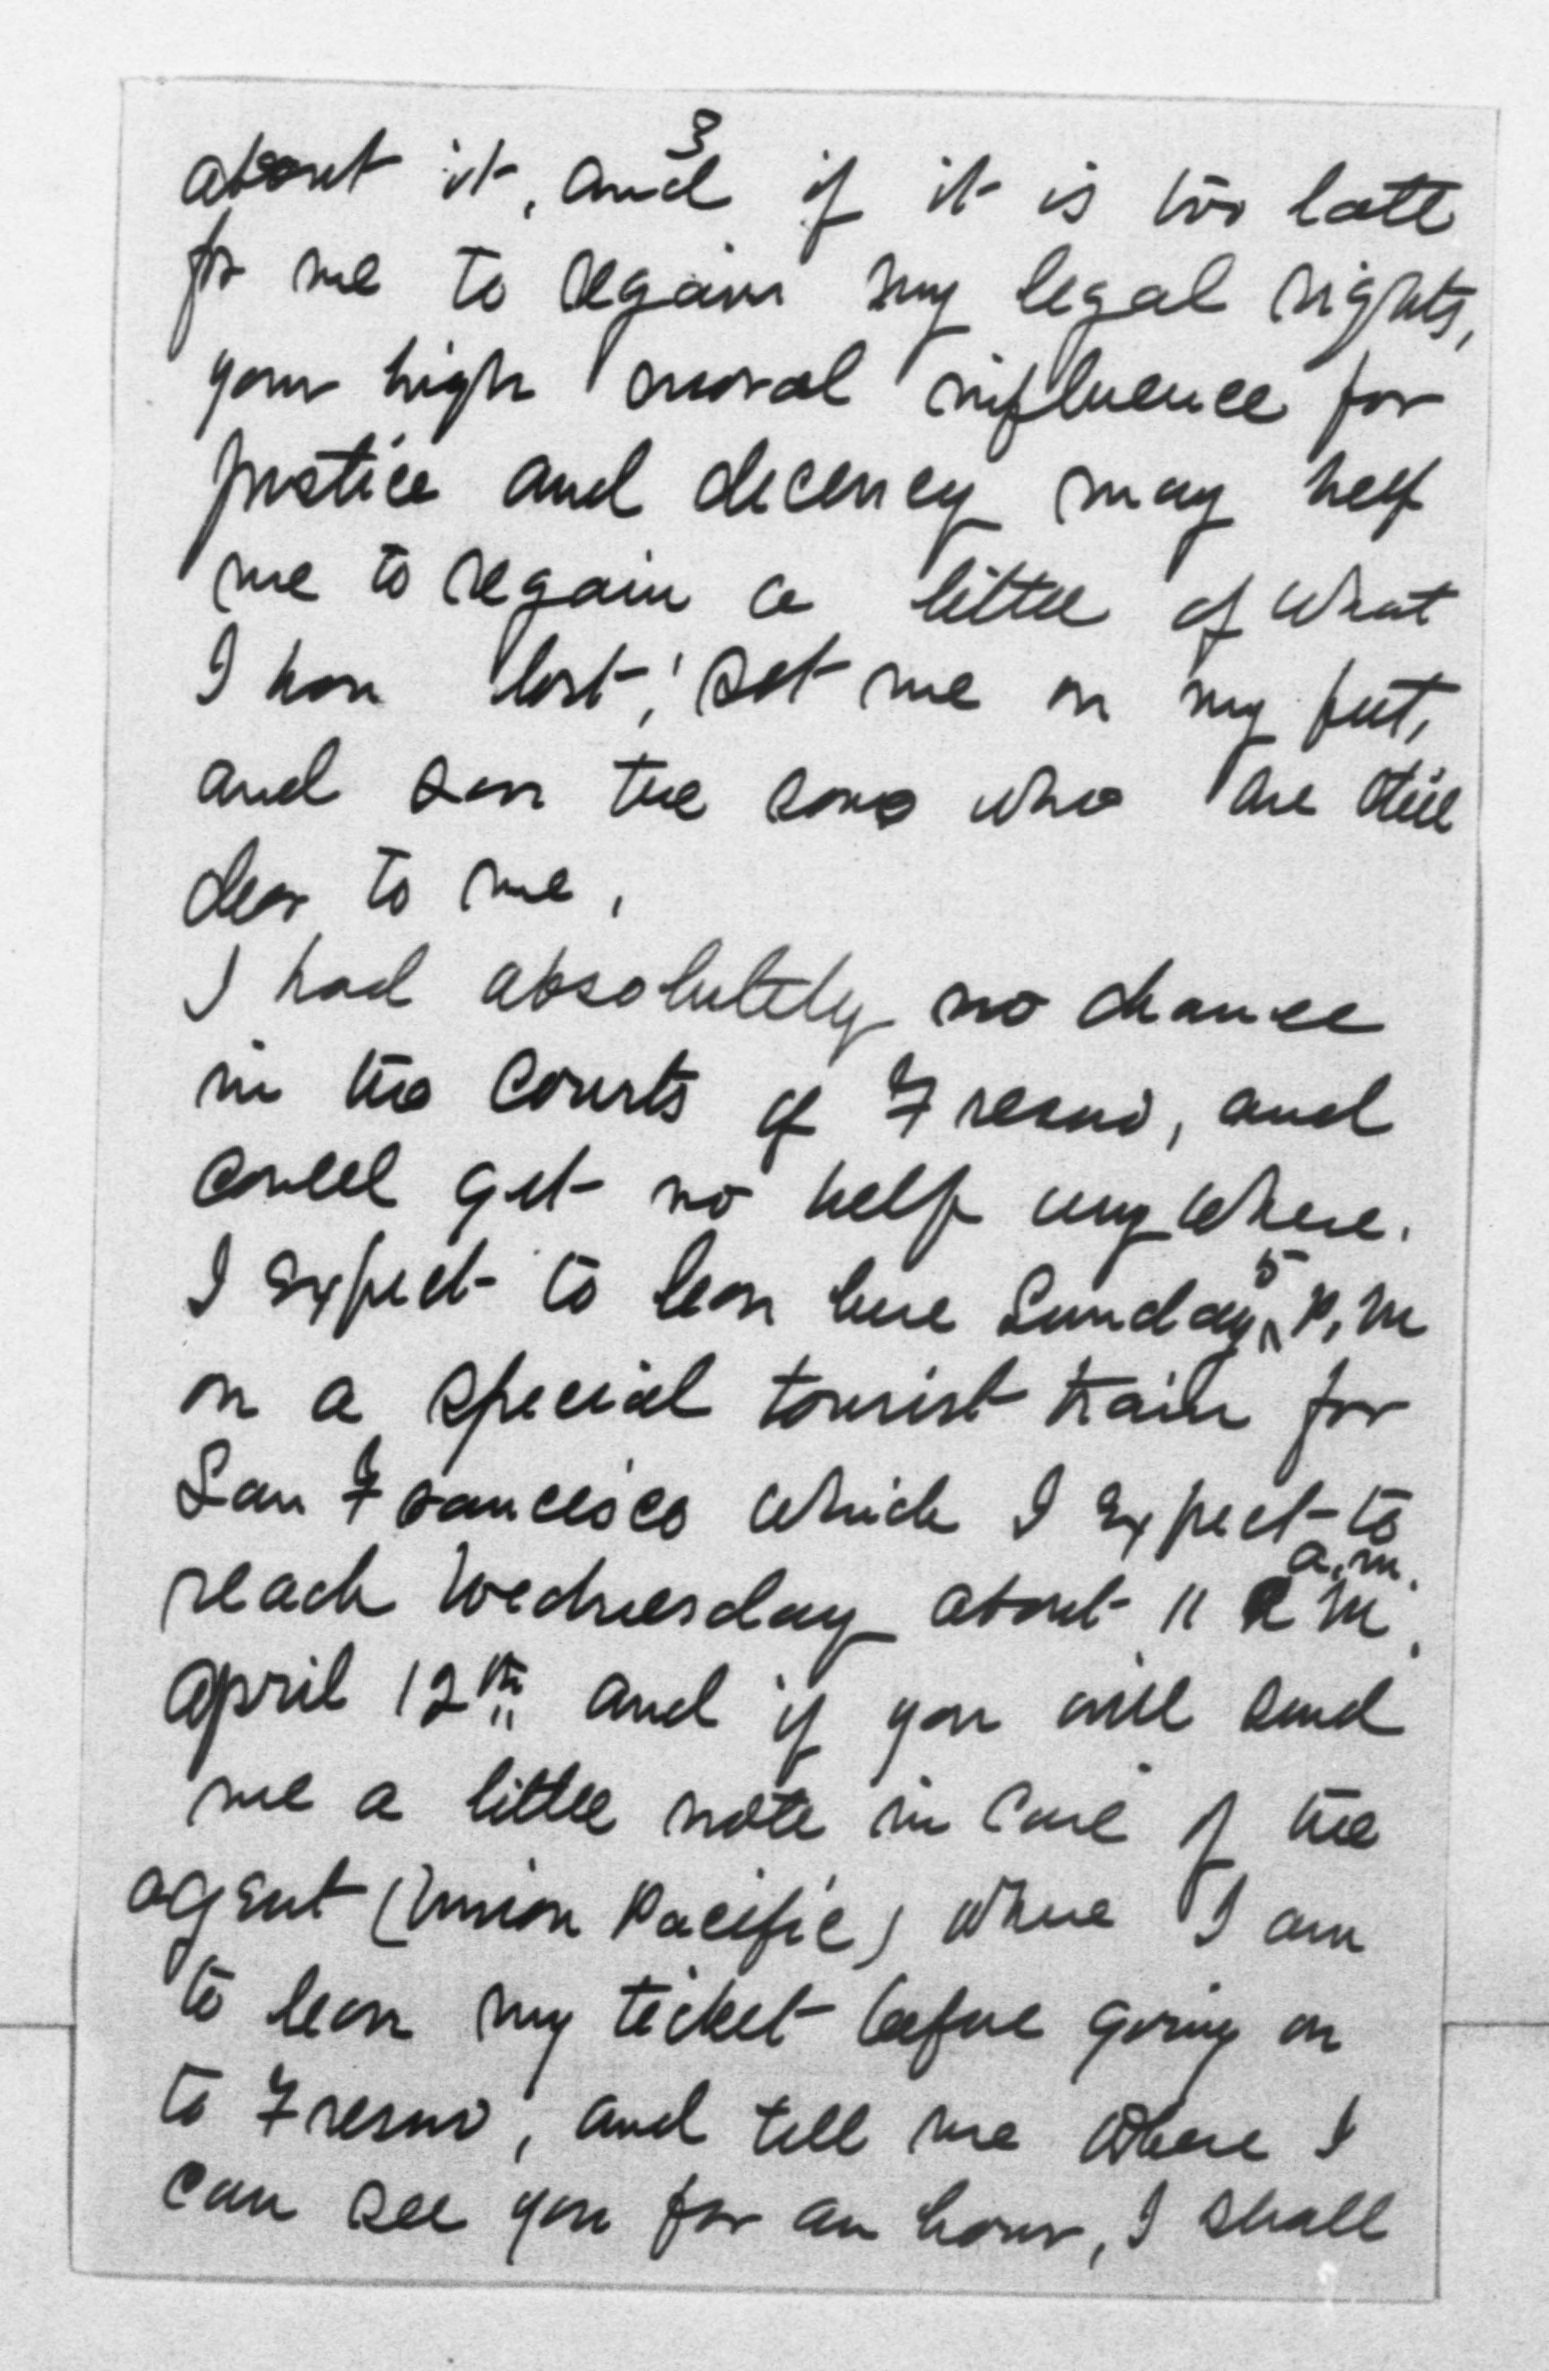 3
about it, and if it is too late
for me to regain my legal rights,
your high moral influence for
justice and decency may help
me to regain a little of what
I have lost, set me on my feet,
and save the sons who are still
dear to me.
I had absolutely no chance
in the Courts of Fresno, and
could get no help any where.
I expect to leave here Sunday 5 P.M
on a special tourist train for
San Francisco which I expect to
reach Wednesday about 11 a.m.
April 12th and if you will send
me a little note in care of the
agent (Union Pacific) where I am
to leave my ticket before going on
to Fresno, and tell me where I
can see you for an hour, I shall